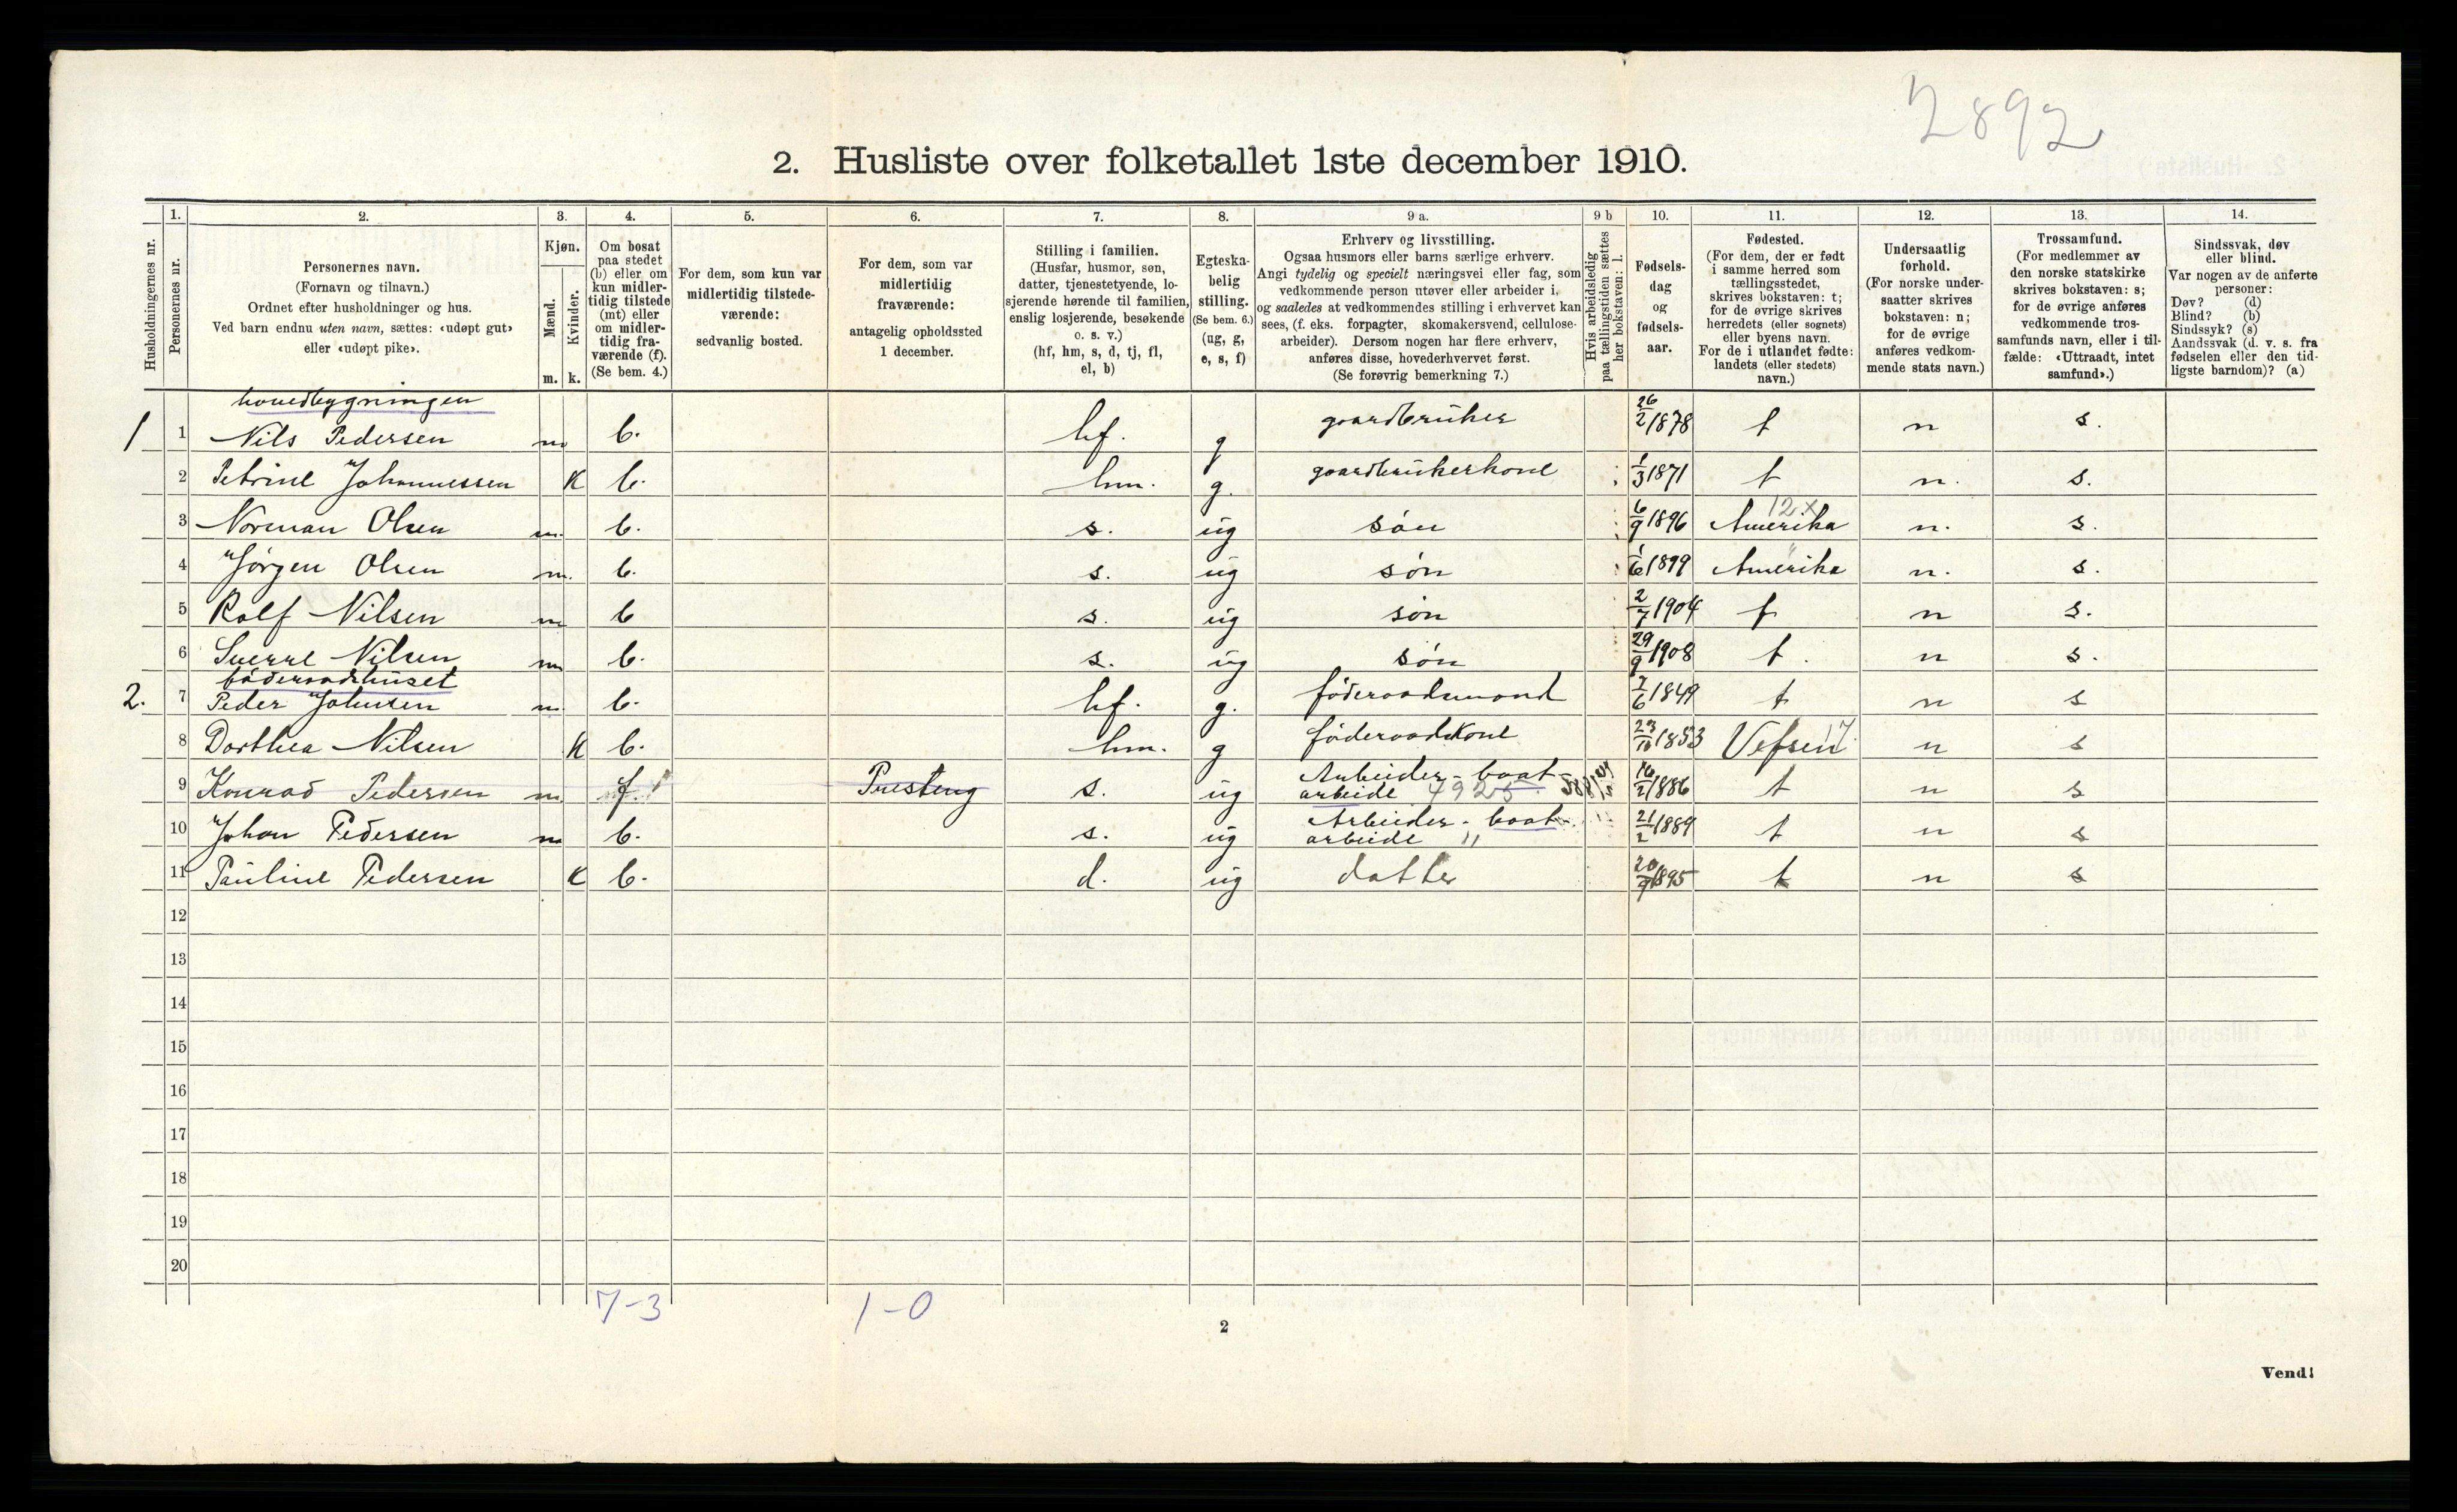 2892
2. Husliste over folketallet 1ste december 1910.
Husholdningernes nr.
1. Personernes nr.
2. Personernes navn.
(Fornavn og tilnavn.)
Ordnet efter husholdninger og hus.
Ved barn endnu uten navn, sættes: «udøpt gut»
eller «udøpt pike».
3. Kjøn.
Mænd. m.
Kvinder. k.
4. Om bosat
paa stedet
(b) eller om
kun midler-
tidig tilstede
(mt) eller
om midler-
tidig fra-
værende (f).
(Se bem. 4.)
5. For dem, som kun var
midlertidig tilstede-
værende:
sedvanlig bosted.
6. For dem, som var
midlertidig
fraværende:
antagelig opholdssted
1 december.
7. Stilling i familien.
(Husfar, husmor, søn,
datter, tjenestetyende, lo-
sjerende hørende til familien,
enslig losjerende, besøkende
o. s. v.)
(hf, hm, s, d, tj, fl,
el, b)
8. Egteska-
belig
stilling.
(Se bem. 6.)
(ug, g,
e, s, f)
9 a. Erhverv og livsstilling.
Ogsaa husmors eller barns særlige erhverv.
Angi tydelig og specielt næringsvei eller fag, som
vedkommende person utøver eller arbeider i,
og saaledes at vedkommendes stilling i erhvervet kan
sees, (f. eks. forpagter, skomakersvend, cellulose-
arbeider). Dersom nogen har flere erhverv,
anføres disse, hovederhvervet først.
(Se forøvrig bemerkning 7.)
9 b Hvis arbeidsledig
paa tællingstiden sættes
her bokstaven: l.
10. Fødsels-
dag
og
fødsels-
aar.
11. Fødested.
(For dem, der er født
i samme herred som
tællingsstedet,
skrives bokstaven: t;
for de øvrige skrives
herredets (eller sognets)
eller byens navn.
For de i utlandet fødte:
landets (eller stedets)
navn.)
12. Undersaatlig
forhold.
(For norske under-
saatter skrives
bokstaven: n;
for de øvrige
anføres vedkom-
mende stats navn.)
13. Trossamfund.
(For medlemmer av
den norske statskirke
skrives bokstaven: s;
for de øvrige anføres
vedkommende tros-
samfunds navn, eller i til-
fælde: «Uttraadt, intet
samfund».)
14. Sindssvak, døv
eller blind.
Var nogen av de anførte
personer:
Døv? (d)
Blind? (b)
Sindssyk? (s)
Aandssvak (d. v. s. fra
fødselen eller den tid-
ligste barndom)? (a)
hovedbygningen
1 1 Nils Pedersen m b. hf. g gaardbruker 26/2 1878 t n s.
2 Petrine Johannessen K b. hm. g. gaardbrukerkone 1/3 1871 t n. s.
12 x
3 Norman Olsen m. b. s. ug søn 6/9 1896 Amerika n. s.
4 Jørgen Olsen m. b. s. ug søn 1/6 1899 Amerika n. s.
5 Rolf Nilsen m b s. ug søn 2/7 1904 t n s.
6 Sverre Nilsen m b. s. ug søn 29/9 1908 t. n s.
föderaadshuset
2. 7 Peder Johnsen m. b. hf. g. föderaadsmand 7/6 1849 t n s
8 Dorthea Nilsen K b. hm. g föderaadkone 23/10 1853 Vefsen 17 n s
9 Konrad Pedersen m. f. Presteng s. ug Arbeider - baat-
arbeide 7925 16/2 1886 t n s
10 Johan Pedersen m b. s. ug Arbeider - baat-
arbeide " 21/2 1889 t n s
11 Pauline Pedersen K b. d. ug datter 20/9 1895 t n s
12
13
14
15
16
17
18
19
20
7-3 1-0
2
Vend!